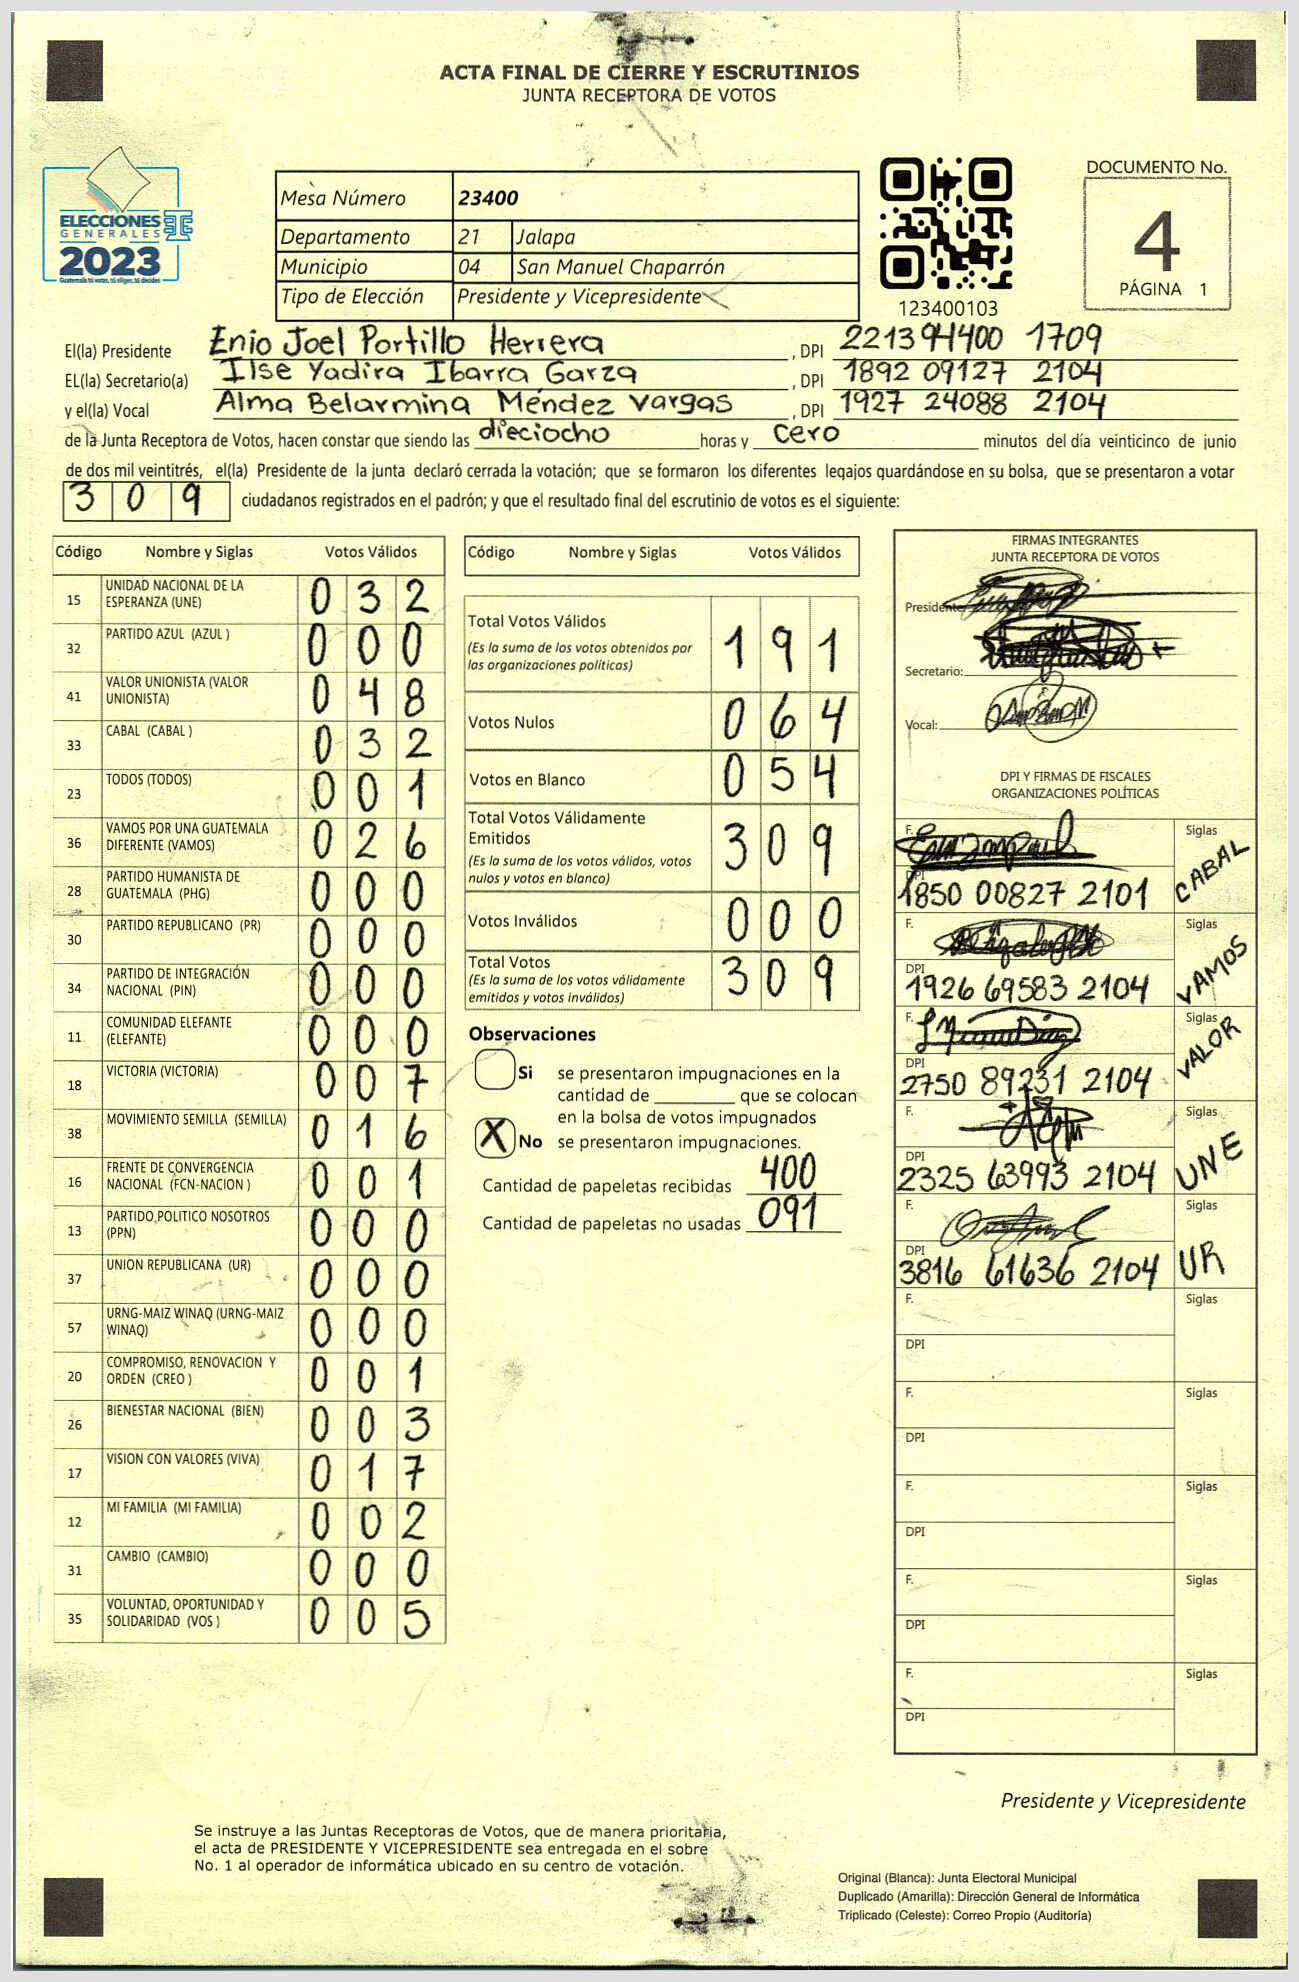 ACTA FINAL DE CIERRE Y ESCRUTINIOS
JUNTA RECEPTORA DE VOTOS
ELECCIONES
GENERALES
2023
Guatemala tú votas, tú eliges, tú decides
Mesa Número 23400
Departamento 21 Jalapa
Municipio 04 San Manuel Chaparrón
Tipo de Elección Presidente y Vicepresidente
123400103
DOCUMENTO No.
4
PÁGINA 1
El(la) Presidente Enio Joel Portillo Herrera , DPI 221394400 1709
EL(la) Secretario(a) Ilse Yadira Ibarra Garza , DPI 1892 09127 2104
y el(la) Vocal Alma Belarmina Méndez Vargas , DPI 1927 24088 2104
de la Junta Receptora de Votos, hacen constar que siendo las dieciocho horas y cero minutos del día veinticinco de junio
de dos mil veintitrés, el(la) Presidente de la junta declaró cerrada la votación; que se formaron los diferentes legajos quardándose en su bolsa, que se presentaron a votar
3 0 9 ciudadanos registrados en el padrón; y que el resultado final del escrutinio de votos es el siguiente:
Código Nombre y Siglas Votos Válidos
15 UNIDAD NACIONAL DE LA ESPERANZA (UNE) 0 3 2
32 PARTIDO AZUL (AZUL ) 0 0 0
41 VALOR UNIONISTA (VALOR UNIONISTA) 0 4 8
33 CABAL (CABAL ) 0 3 2
23 TODOS (TODOS) 0 0 1
36 VAMOS POR UNA GUATEMALA DIFERENTE (VAMOS) 0 2 6
28 PARTIDO HUMANISTA DE GUATEMALA (PHG) 0 0 0
30 PARTIDO REPUBLICANO (PR) 0 0 0
34 PARTIDO DE INTEGRACIÓN NACIONAL (PIN) 0 0 0
11 COMUNIDAD ELEFANTE (ELEFANTE) 0 0 0
18 VICTORIA (VICTORIA) 0 0 7
38 MOVIMIENTO SEMILLA (SEMILLA) 0 1 6
16 FRENTE DE CONVERGENCIA NACIONAL (FCN-NACION ) 0 0 1
13 PARTIDO POLITICO NOSOTROS (PPN) 0 0 0
37 UNION REPUBLICANA (UR) 0 0 0
57 URNG-MAIZ WINAQ (URNG-MAIZ WINAQ) 0 0 0
20 COMPROMISO, RENOVACION Y ORDEN (CREO ) 0 0 1
26 BIENESTAR NACIONAL (BIEN) 0 0 3
17 VISION CON VALORES (VIVA) 0 1 7
12 MI FAMILIA (MI FAMILIA) 0 0 2
31 CAMBIO (CAMBIO) 0 0 0
35 VOLUNTAD, OPORTUNIDAD Y SOLIDARIDAD (VOS ) 0 0 5
Código Nombre y Siglas Votos Válidos
Total Votos Válidos 1 9 1
(Es la suma de los votos obtenidos por
las organizaciones políticas)
Votos Nulos 0 6 4
Votos en Blanco 0 5 4
Total Votos Válidamente
Emitidos 3 0 9
(Es la suma de los votos válidos, votos
nulos y votos en blanco)
Votos Inválidos 0 0 0
Total Votos 3 0 9
(Es la suma de los votos válidamente
emitidos y votos inválidos)
Observaciones
Si se presentaron impugnaciones en la
cantidad de ________ que se colocan
en la bolsa de votos impugnados
X No se presentaron impugnaciones.
Cantidad de papeletas recibidas 400
Cantidad de papeletas no usadas 091
FIRMAS INTEGRANTES
JUNTA RECEPTORA DE VOTOS
Presidente:
Secretario:
Vocal:
DPI Y FIRMAS DE FISCALES
ORGANIZACIONES POLÍTICAS
F. Siglas CABAL
DPI 1850 00827 2101
F. Siglas VAMOS
DPI 1926 69583 2104
F. Siglas VALOR
DPI 2750 89231 2104
F. Siglas UNE
DPI 2325 63993 2104
F. Siglas UR
DPI 3816 61636 2104
F. Siglas
DPI
F. Siglas
DPI
F. Siglas
DPI
F. Siglas
DPI
F. Siglas
DPI
Presidente y Vicepresidente
Se instruye a las Juntas Receptoras de Votos, que de manera prioritaria,
el acta de PRESIDENTE Y VICEPRESIDENTE sea entregada en el sobre
No. 1 al operador de informática ubicado en su centro de votación.
Original (Blanca): Junta Electoral Municipal
Duplicado (Amarilla): Dirección General de Informática
Triplicado (Celeste): Correo Propio (Auditoría)